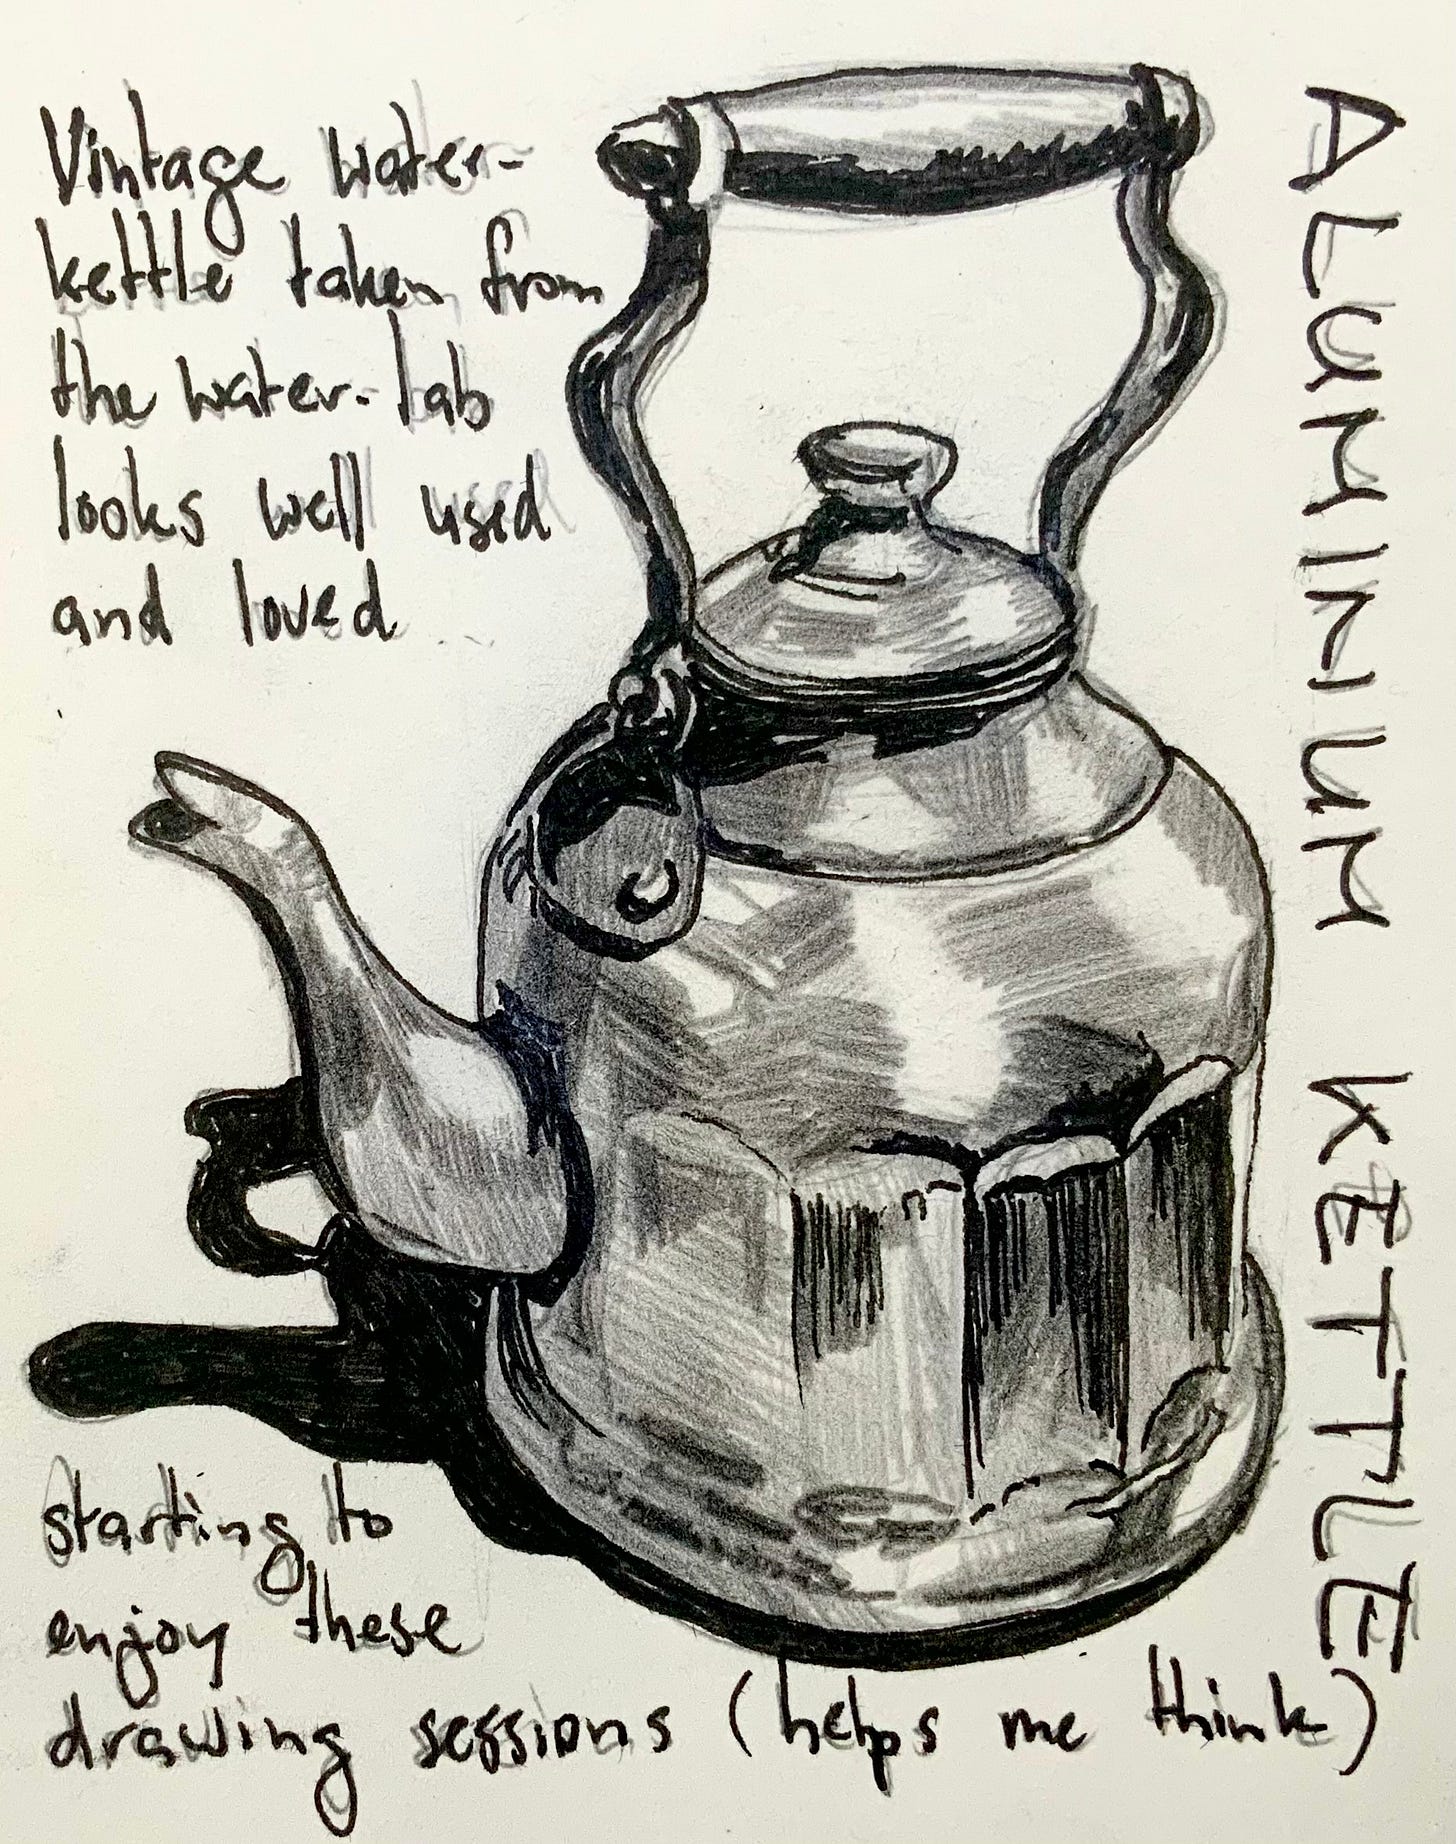 Vintage water-
kettle taken from
the water-lab
looks well used
and loved
ALUMINUM KETTLE
starting to
enjoy these
drawing sessions (helps me think)